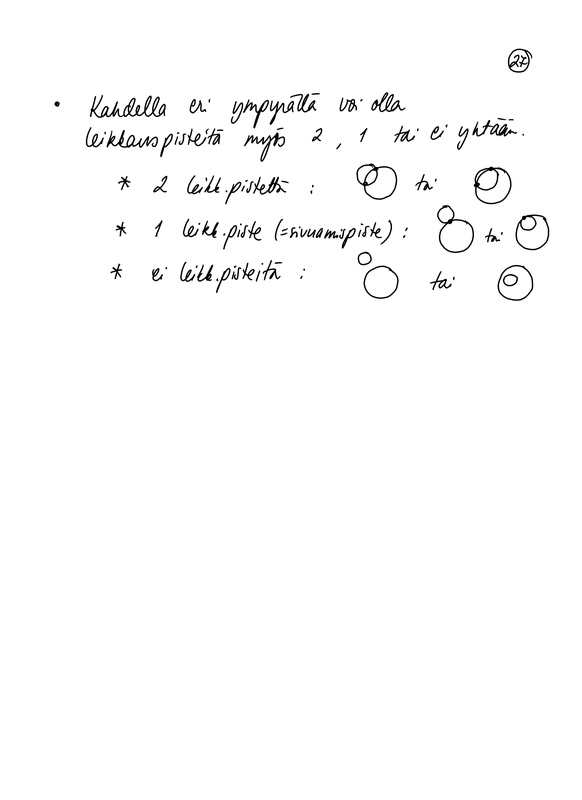 27
• Kahdella eri ympyrällä voi olla
leikkauspisteitä myös 2, 1 tai ei yhtään.
* 2 leikk.pistettä : tai
* 1 leikk.piste (=sivuamispiste) : tai
* ei leikk.pisteitä : tai